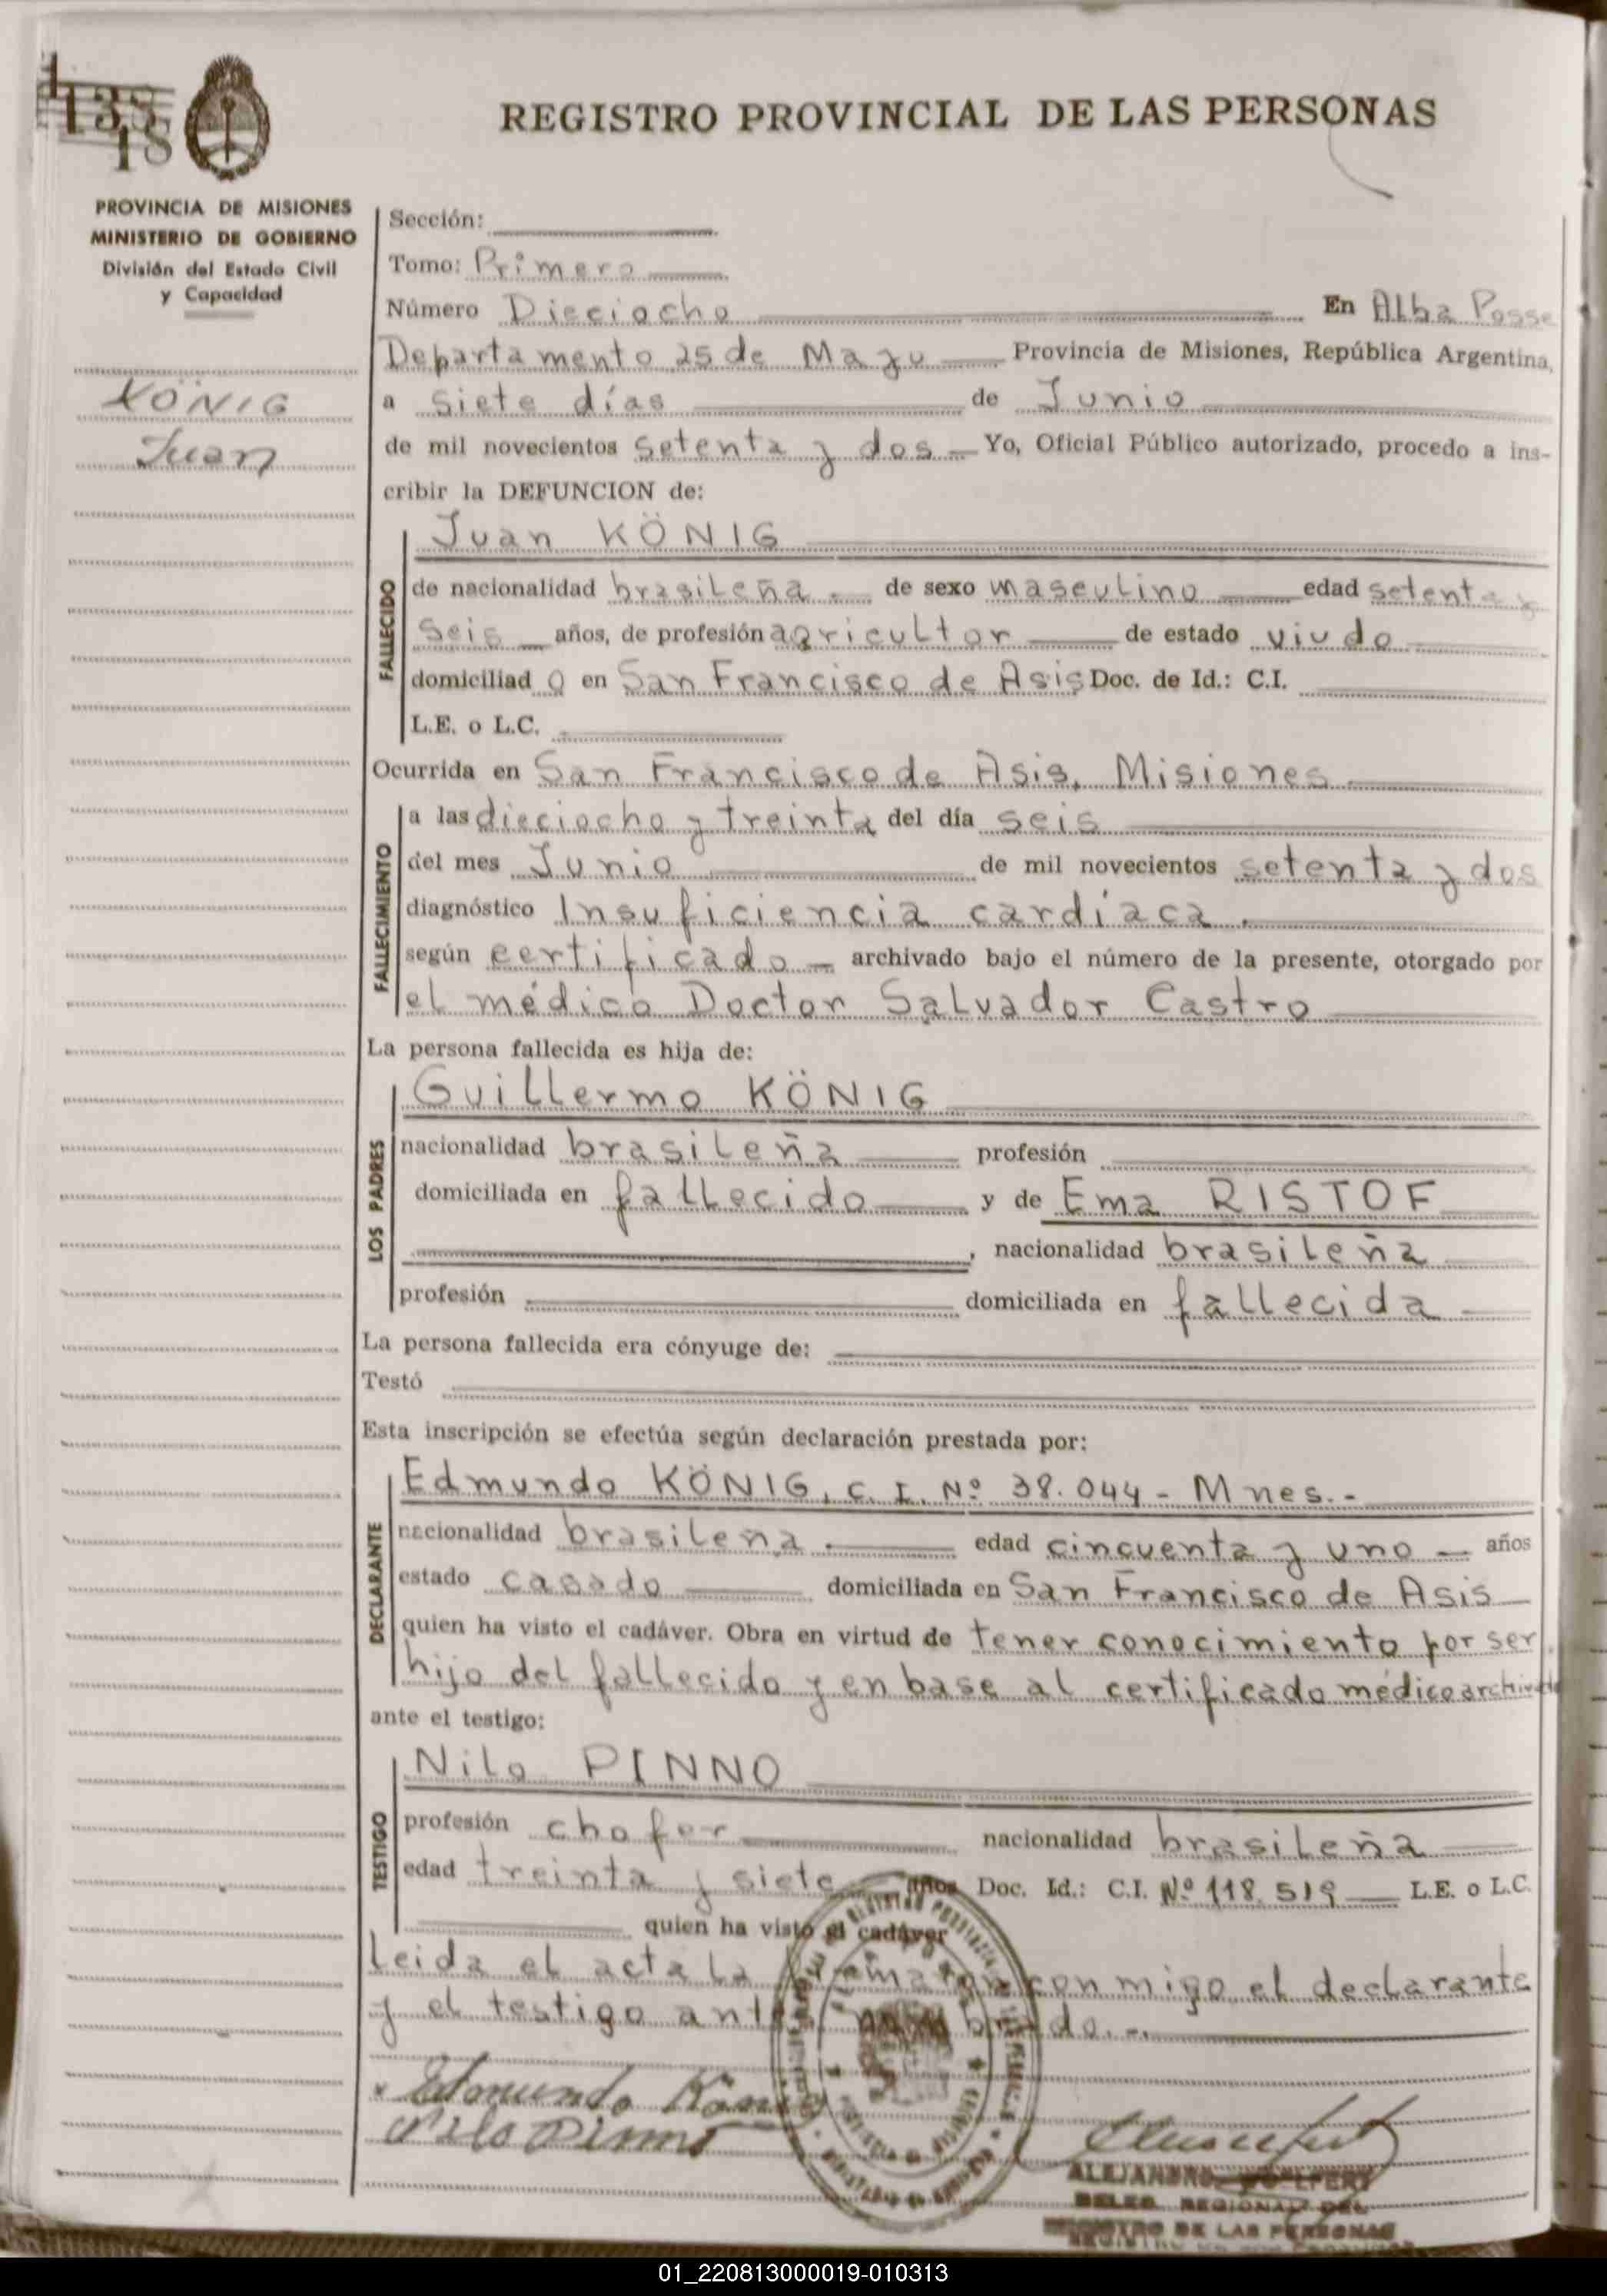 18
REGISTRO PROVINCIAL DE LAS PERSONAS
PROVINCIA DE MISIONES
MINISTERIO DE GOBIERNO
División del Estado Civil
y Capacidad
KÖNIG
Juan
Sección:
Tomo: Primero
Número Dieciocho En Alba Posse
Departamento 25 de Mayo Provincia de Misiones, República Argentina,
a siete días de Junio
de mil novecientos setenta y dos Yo, Oficial Público autorizado, procedo a ins-
cribir la DEFUNCION de:
Juan KÖNIG
FALLECIDO
de nacionalidad brasileña de sexo masculino edad setenta y
seis años, de profesión agricultor de estado viudo
domiciliad o en San Francisco de Asis Doc. de Id.: C.I.
L.E. o L.C.
Ocurrida en San Francisco de Asis, Misiones
FALLECIMIENTO
a las dieciocho y treinta del día seis
del mes Junio de mil novecientos setenta y dos
diagnóstico Insuficiencia cardíaca.
según certificado archivado bajo el número de la presente, otorgado por
el médico Doctor Salvador Castro
La persona fallecida es hija de:
Guillermo KÖNIG
LOS PADRES
nacionalidad brasileña profesión
domiciliada en fallecido y de Ema RISTOF
, nacionalidad brasileña
profesión domiciliada en fallecida
La persona fallecida era cónyuge de:
Testó
Esta inscripción se efectúa según declaración prestada por:
Edmundo KÖNIG, C. I. Nº 38.044 - Mnes.-
DECLARANTE
nacionalidad brasileña. edad cincuenta y uno años
estado casado domiciliada en San Francisco de Asis
quien ha visto el cadáver. Obra en virtud de tener conocimiento por ser
hijo del fallecido y en base al certificado médico archivado
ante el testigo:
Nilo PINNO
TESTIGO
profesión chofer nacionalidad brasileña
edad treinta y siete años Doc. Id.: C.I. Nº 118.519 L.E. o L.C.
quien ha visto el cadáver
Leida el acta la firmaron conmigo el declarante
y el testigo ante nombrado.-.
Edmundo König
Nilo Pinno
ALEJANDRO
DELEG. REGIONAL DEL
REGISTRO DE LAS PERSONAS
01_220813000019-010313